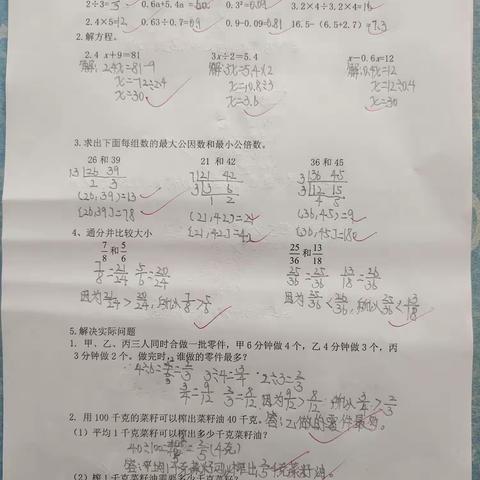 2÷3= 0.6a+5.4a=6a 0.3²=0.09 3.2×4÷3.2×4=16
2.4×5=12 0.63÷0.7=0.9 0.9-0.09=0.81 16.5-(6.5+2.7)=7.3
2.解方程。
2.4 x+9=81 3x÷2=5.4 x-0.6x=12
解:2.4x=81-9 解:3x=5.4×2 解:0.4x=12
x=72÷2.4 x=10.8÷3 x=12÷0.4
x=30 x=3.6 x=30
3.求出下面每组数的最大公因数和最小公倍数。
26 和 39 21 和 42 36 和 45
13 26 39 7 21 42 3 36 45
2 3 3 3 6 3 12 15
1 2 4 5
(26,39)=13 (21,42)=21 (36,45)=9
[26,39]=78 [21,42]=42 [36,45]=180
4、通分并比较大小
7/8 和 5/6 25/36 和 13/18
7/8=21/24 5/6=20/24 25/36=25/36 13/18=26/36
因为21/24>20/24,所以7/8>5/6 因为25/36<26/36,所以25/36<13/18
5.解决实际问题
1. 甲、乙、丙三人同时合做一批零件，甲 6 分钟做 4 个，乙 4 分钟做 3 个，丙
3 分钟做 2 个。做完时，谁做的零件最多？
4÷6=4/6=2/3 3÷4=3/4 2÷3=2/3
3/4=9/12 2/3=8/12 因为9/12>8/12 所以3/4>2/3
答:乙做的零件最多。
2. 用 100 千克的菜籽可以榨出菜籽油 40 千克。
（1）平均 1 千克菜籽可以榨出多少千克菜籽油？
40÷100==2/5(千克)
答:平均1千克菜籽可以榨出2/5千克菜籽油。
（2）榨 1 千克菜籽油需要多少千克菜籽？